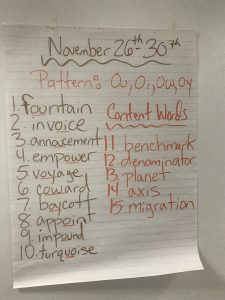 November 26th-30th
Pattern: Ou, Oi, Ow, Oy
1. fountain
2. invoice
3.
4. empower
5. voyage
6. coward
7. boycott
8. appoint
9. impound
10. turquoise
Content Words
11. benchmark
12. denominator
13. planet
14. axis
15. migration